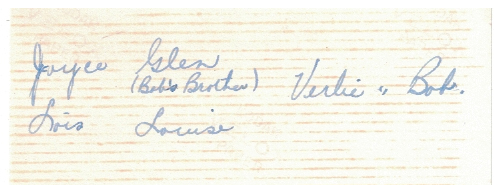 Joyce Glen
(Bob's Brother) Verlie " Bob.
Lois Louise